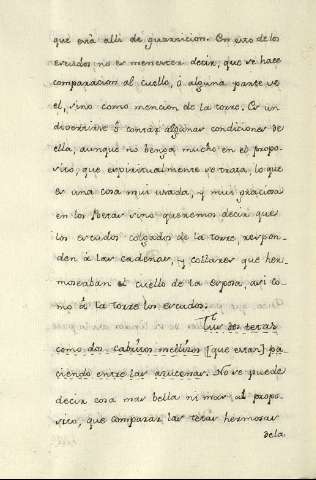 que está alli de guarnicion. En esto de los
escudos no es menester decir, que se hace
comparacion al cuello, ó alguna parte de
el, sino como mencion de la torre. Es un
divertirse á contar algunas condiciones de
ella, aunque no benga mucho en el propo-
sito, que espiritualmente se trata, lo que
es una cosa mui usada, y mui graciosa
en los Poetas sino queremos decir que
los escudos colgados de la torre, respon-
den á las cadenas, y collares que her-
moseaban el cuello de la esposa, asi co-
mo á la torre los escudos.
Tus dos tetas
como dos cabritos mellizos [que estan] pa-
ciendo entre las azucenas. No se puede
decir cosa mas bella ni mas al propo-
sito, que comparar las tetas hermosas
dela